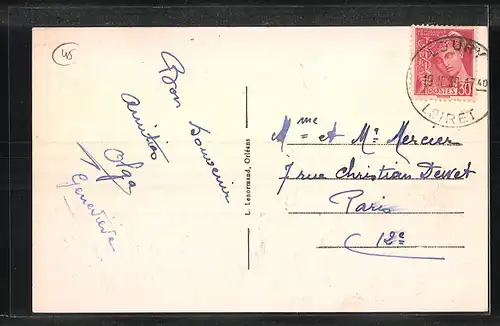 45
Bon Souvenir
amitiés
Olga
Geneviève
L. Lenormand, Orléans
POSTES 30
LOURY
LOIRET
Mme et Mr Mercier
7 rue Christian Dewet
Paris
12e